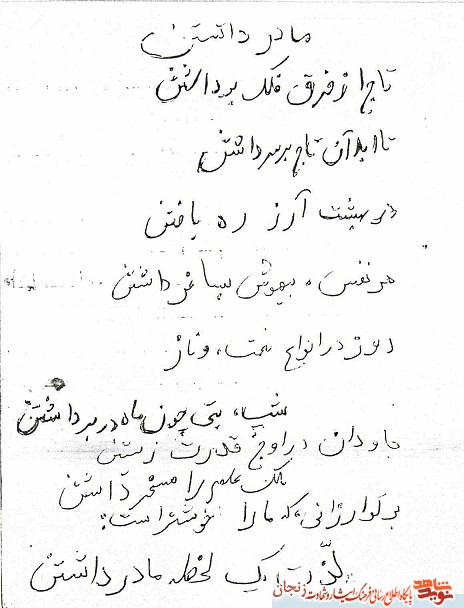 مادر داشتن
تاج از فرق فلک برداشتن
تا ابد آن تاج بر سر داشتن
در بهشت آرزو ره یافتن
هر نفس، بیهوش پیا غر داشتن
روز در انواع نعمت، و ناز
شب، بتی چون ماه در بر داشتن
جاودان در اوج قدرت زیستن
ملک عالم را مسخر داشتن
بر تو ارزانی، که ما را خوشتر است:
لذّت یک لحظه مادر داشتن
نوید شاهد
پایگاه اطلاع رسانی فرهنگ ایثار و شهادت زنجان